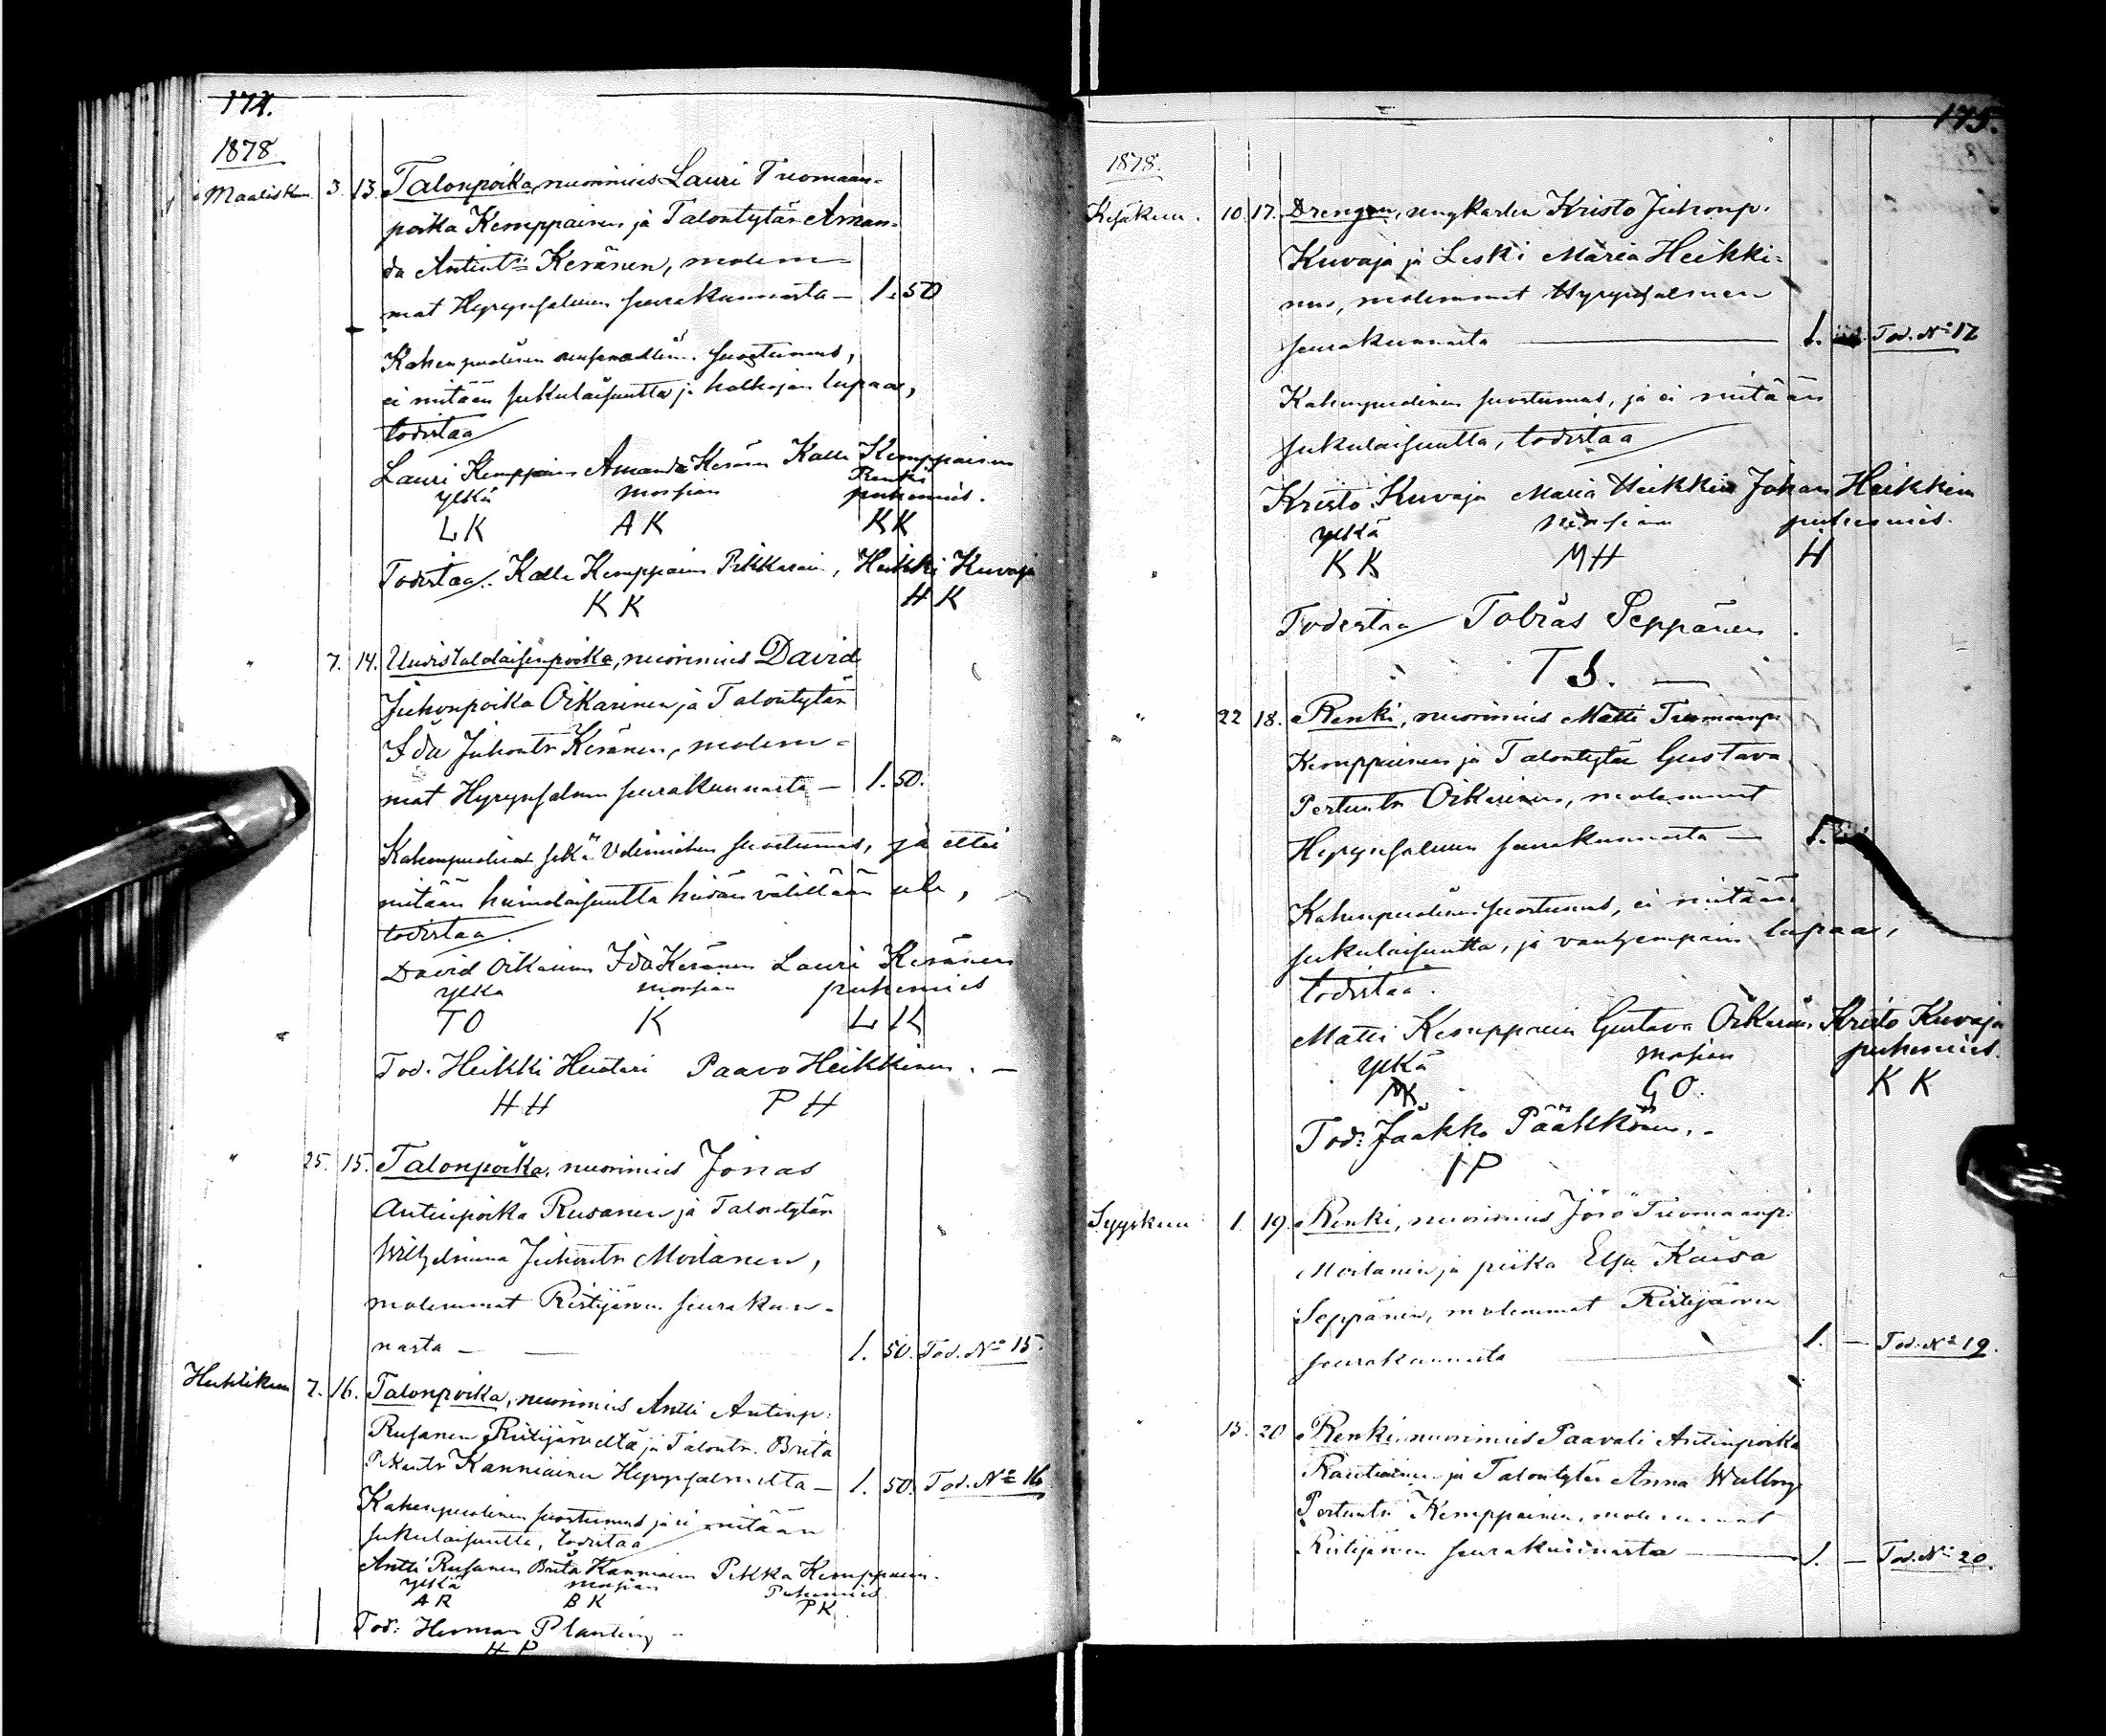 174.
1878
Maalisku. 3. 13. Talonpoika, nuorimies Lauri Tuomaan-
poika Kemppainen ja Talontytär Aman-
da Antintr Keränen, molem-
mat Hyrynsalmen seurakunnasta — 1. 50
Kahenpuolisen suostumus,
ei mitään sukulaisuutta ja holhojan lupaa,
todistaa
Lauri Kemppain Amanda Keränen Kalle Kemppainen
ylkä morsian Renki puhemies.
L K A K K K
Todistaa. Kalle Kemppainen Pikkarain, Heikki Kuvaja
K K H K
" 7. 14. Uudistalolaisenpoika, nuorimies David
Juhonpoika Oikarinen ja Talontytär
Ida Juhontr Keränen, molem-
mat Hyrynsalmen seurakunnasta — 1. 50.
Kahenpuolinen sekä Udimiehen suostumus, ja ettei
mitään heimolaisuutta heidän välillään ole,
todistaa.
David Oikarinen Ida Keränen Lauri Keränen
ylkä morsian puhemies
T O K L K
Tod. Heikki Heikkinen. —
H H P H
" 25. 15. Talonpoika, nuorimies Jonas
Antinpoika Rusanen ja Talontytär
Wilhelmina Juhontr Moilanen,
molemmat Ristijärven seurakun-
nasta — 1. 50. Tod. No 15.
Huhtikuu 7. 16. Talonpoika, nuorimies Antti Antinp.
Rusanen Ristijärveltä ja Talontr. Brita
Pekantr Kanniainen Hyrynsalmelta — 1. 50. Tod. No 16
Kahenpuolinen suostumus ja ei mitään
sukulaisuutta, todistaa
Antti Rusanen Brita Kanniainen Pekka Kemppainen.
ylkä morsian Puhemies
A R B K P K
Tod: Herman Planting
H P
175.
1878.
Kesäkuu. 10. 17. Drengen, ungkarlen Kristo Juhonp.
Kuvaja ja Leski Maria Heikki-
nen, molemmat Hyrynsalmen
seurakunnasta — 1. Tod. No 17
Kahenpuolinen suostumus, ja ei mitään
sukulaisuutta, todistaa
Kristo Kuvaja Maria Heikkin Johan Heikkin
ylkä morsian puhemies.
K K M H H
Todistaa Tobias Seppänen
T S. —
" 22 18. Renki, nuorimies Matti Tuomaanp.
Kemppainen ja Talontytär Gustava
Pertuntr Oikarinen, molemmat
Hyrynsalmen seurakunnasta — 1.
Kahenpuolinen suostumus, ei mitään
sukulaisuutta, ja vanhempain lupaa,
todistaa.
Matti Kemppain Gustava Oikarain Kristo Kuvaja
ylkä morsian puhemies.
M K G O. K K
Tod: Jaakko Pääkkönen.
I P
Syyskuu 1. 19. Renki, nuorimies Jörö Tuomaanp.
Moilanen ja piika Elsa Kaisa
Seppänen, molemmat Ristijärven
seurakunnasta 1. — Tod. No 19.
" 15. 20 Renki, nuorimies Paavali Antinpoika
Rautiainen ja Talontytär Anna Walborg
Pertuntr Kemppainen, molemmat
Ristijärven seurakunnasta — 1. — Tod. No 20.